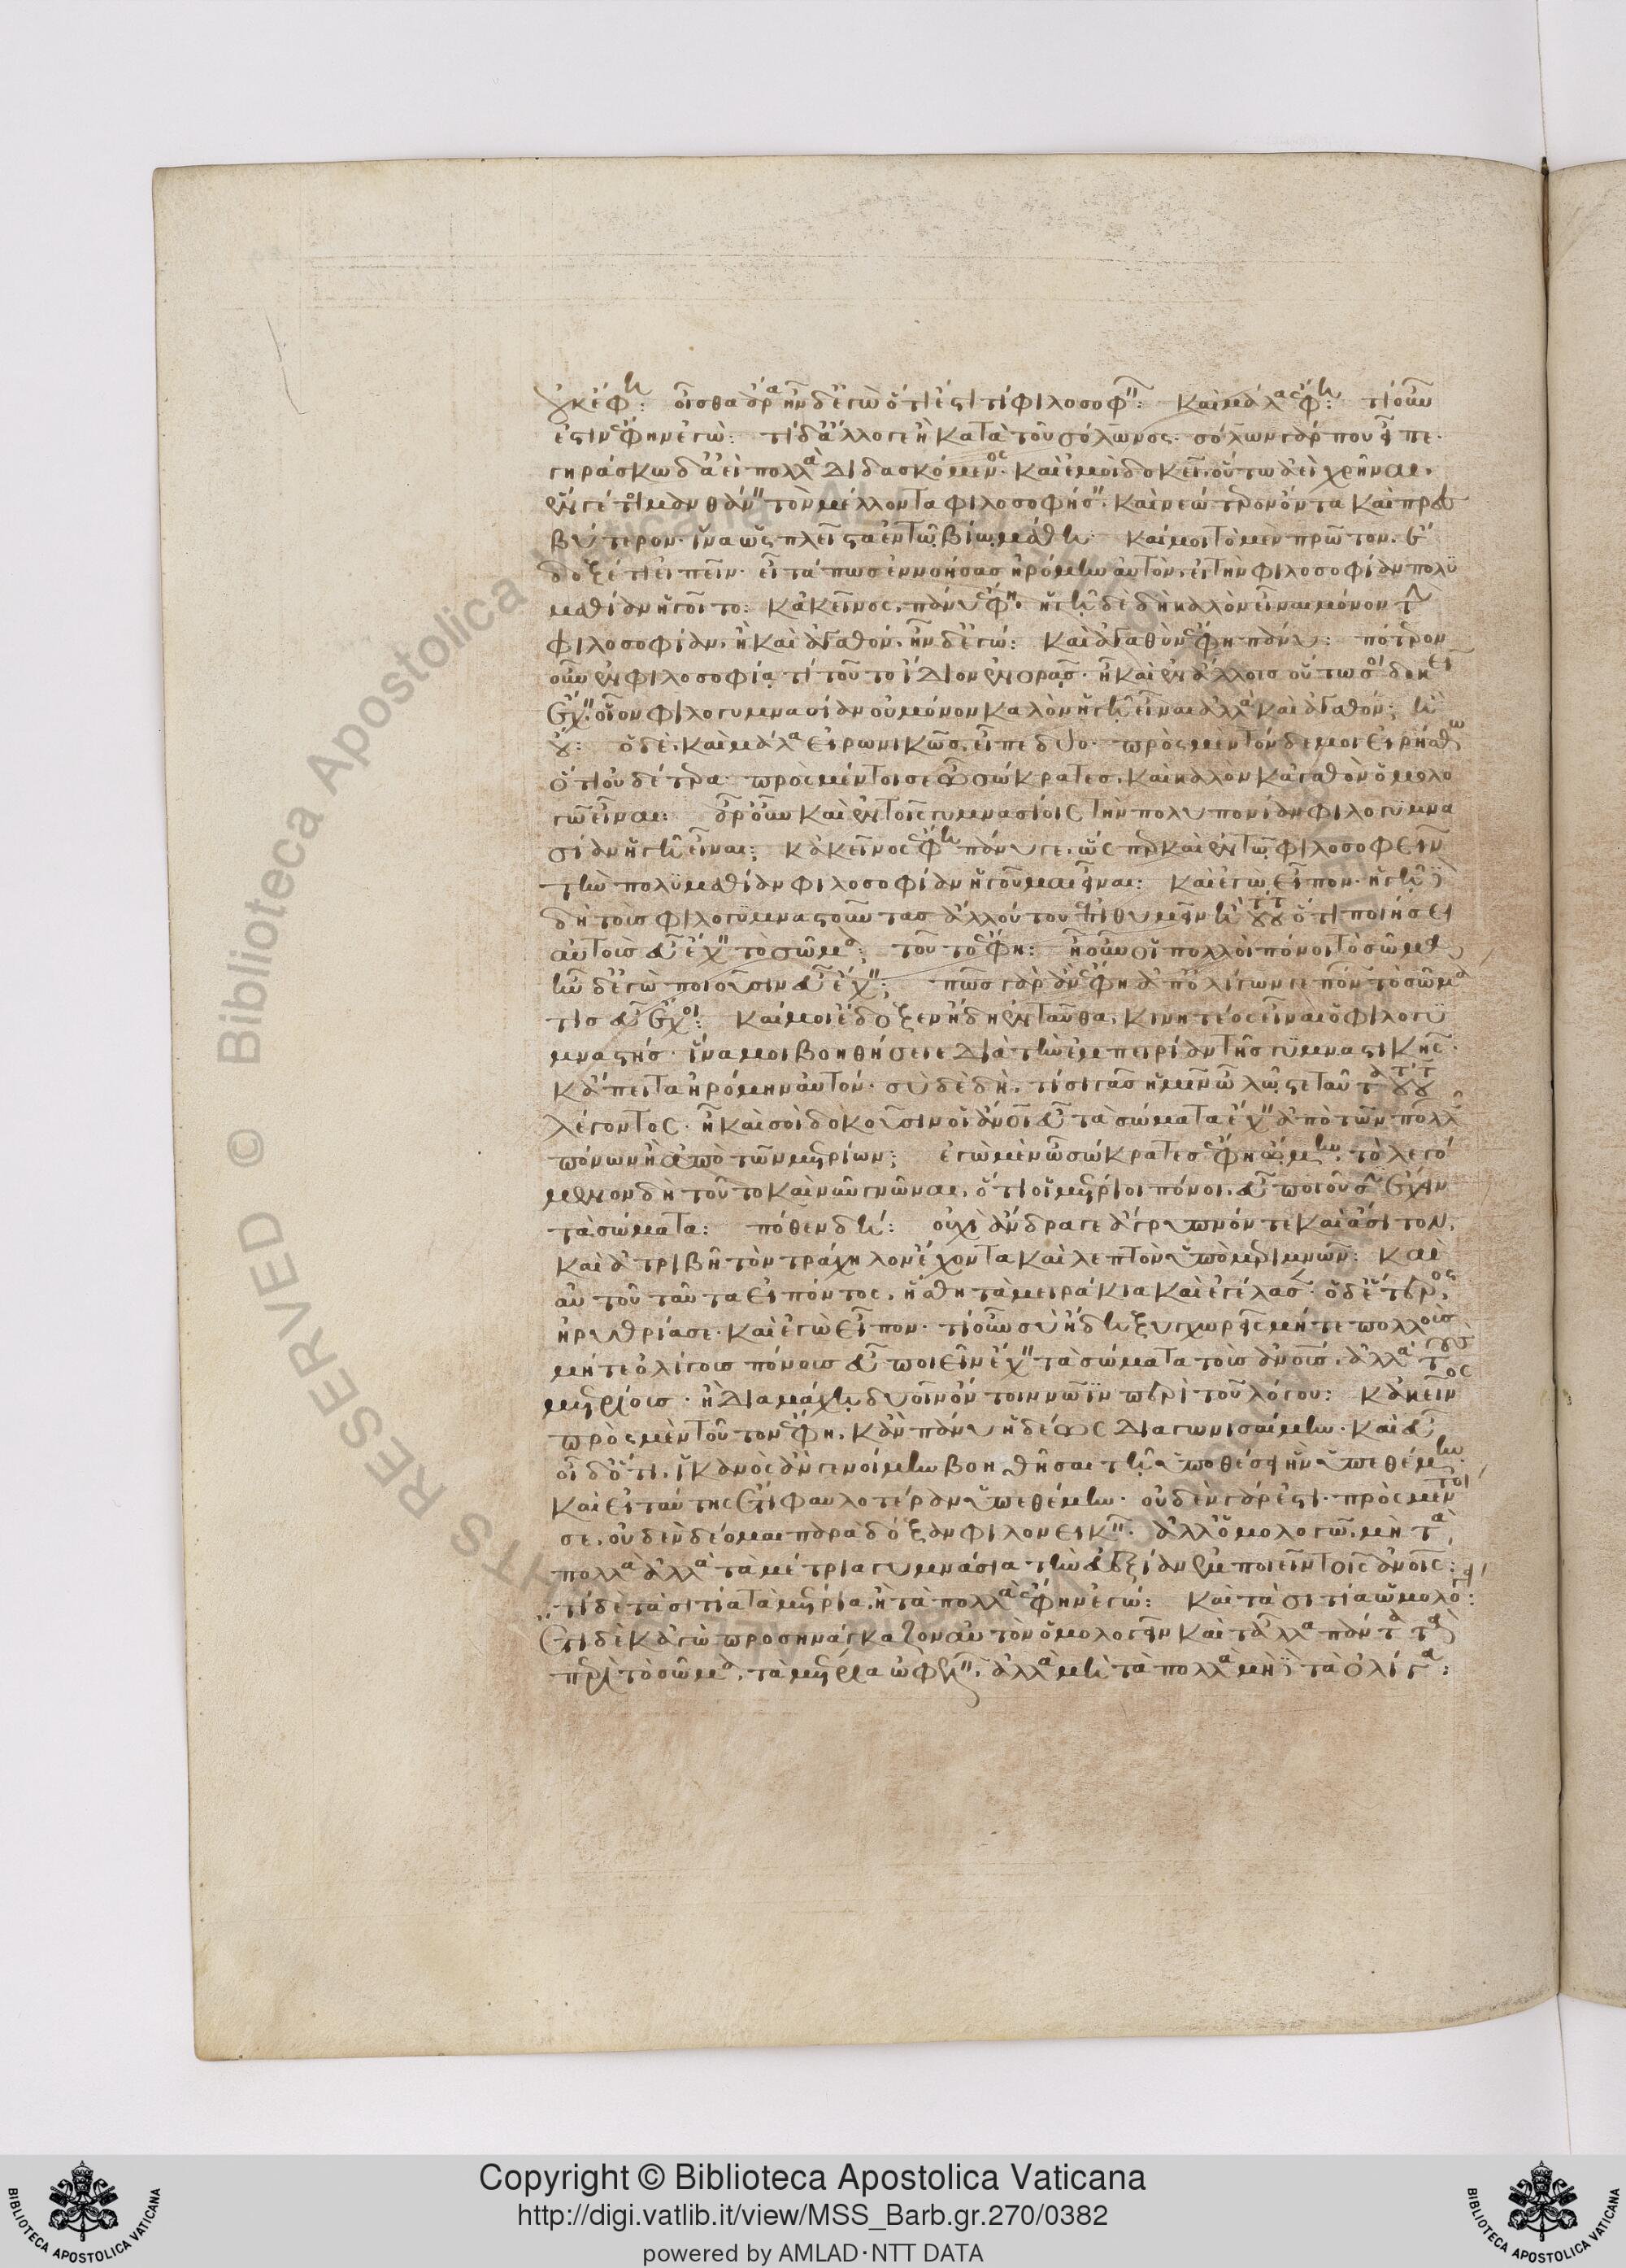 οὐκ ἔφη: οἶσθα ἄρα ἦν δ' ἐγὼ ὅτι ἐστι τὶ φιλοσοφεῖν: καὶ μάλα ἔφη: τί οὖν
ἐστιν ἔφην ἐγώ: τί δ' ἄλλο γε ἢ κατὰ τοῦ σόλωνος. σόλων γάρ που εἶπε.
γηράσκω δ' ἀεὶ πολλὰ διδασκόμενος. καὶ ἐμοὶ δοκεῖ. οὕτω ἀεὶ χρῆναι.
ἕν γέ τι μανθάνειν τὸν μέλλοντα φιλοσοφήσειν. καὶ νεώτερον ὄντα καὶ πρεσ
βύτερον. ἵνα ὡς πλεῖστα ἐν τῷ βίῳ μάθη. καί μοι τὸ μὲν πρῶτον. ἔ
δοξέ τι εἰπεῖν. εἶτά πως ἐννοήσας ἠρόμην αὐτὸν. εἰ τὴν φιλοσοφίαν πολυ
μαθίαν ἡγοῖτο: κἀκεῖνος. πάνυ ἔφη. ἡγῇ δὲ δὴ καλὸν εἶναι μόνον τὴν
φιλοσοφίαν. ἢ καὶ ἀγαθόν. ἦν δ' ἐγώ: καὶ ἀγαθὸν ἔφη πάνυ: πότερον
οὖν ἐν φιλοσοφίᾳ τί τοῦτο ἴδιον ἐνορᾷς. ἢ καὶ ἐν ἄλλοις οὕτω σοι δοκεῖ
ἔχειν. οἷον φιλογυμνασίαν οὐ μόνον καλὸν ἡγῇ εἶναι ἀλλὰ καὶ ἀγαθόν; ἢ
οὔ: ὁ δὲ. καὶ μάλα εἰρωνικῶς. εἶπε δύο. πρὸς μὲν τόνδε μοι εἰρήσθω
ὅτι οὐδέτερα. πρὸς μέντοι σὲ ὦ σώκρατες. καὶ καλὸν κἀγαθὸν ὁμολο
γῶ εἶναι: ἆρ' οὖν καὶ ἐν τοῖς γυμνασίοις τὴν πολυπονίαν φιλογυμνα
σίαν ἡγῇ εἶναι; κἀκεῖνος ἔφη πάνυ γε. ὥς περ καὶ ἐν τῷ φιλοσοφεῖν
τὴν πολυμαθίαν φιλοσοφίαν ἡγοῦμαι εἶναι: καὶ ἐγὼ εἶπον. ἡγῇ δὲ
δὴ τοὺς φιλογυμναστοῦντας ἄλλού του ἐπιθυμεῖν ἢ τούτου ὅτι ποιήσει
αὐτοὺς εὖ ἔχειν τὸ σῶμα; τούτου ἔφη: ἦ οὖν οἱ πολλοὶ πόνοι τὸ σῶμα
ἦν δ' ἐγὼ ποιοῦσιν εὖ ἔχειν; πῶς γὰρ ἂν ἔφη ἀπ' ὀλίγων γε πόνων τὸ σῶμα
τὶς εὖ ἔχοι: καί μοι ἔδοξεν ἤδη ἐνταῦθα. κινητέος εἶναι ὁ φιλογυ
μναστής. ἵνα μοι βοηθήσειε διὰ τὴν ἐμπειρίαν τῆς γυμναστικῆς.
κἄπειτα ἠρόμην αὐτόν. σὺ δὲ δὴ. τί σιγᾷς ἡμῖν ὦ λῷστε ταῦτα τούτου
λέγοντος. ἢ καὶ σοὶ δοκοῦσιν οἱ ἄνθρωποι εὖ τὰ σώματα ἔχειν ἀπὸ τῶν πολλῶν
πόνων ἢ ἀπὸ τῶν μετρίων; ἐγὼ μὲν ὦ σώκρατες ἔφη ᾤμην. τὸ λεγό
μενον δὴ τοῦτο κἂν ὗν γνῶναι. ὅτι οἱ μέτριοι πόνοι. εὖ ποιοῦσιν ἔχειν
τὰ σώματα: πόθεν δὴ: οὐχὶ ἄνδρα γε ἄγρυπνόν τε καὶ ἄσιτον.
καὶ ἀτριβῆ τὸν τράχηλον ἔχοντα καὶ λεπτὸν ὑπὸ μεριμνῶν: καὶ
αὐτοῦ ταῦτα εἰπόντος. ἥσθη τὰ μειράκια καὶ ἐγέλασε. ὁ δ' ἕτερος
ἠρυθρίασε. καὶ ἐγὼ εἶπον. τί οὖν σὺ ἤδη ξυγχωρεῖς μήτε πολλοὺς
μήτε ὀλίγους πόνους εὖ ποιεῖν ἔχειν τὰ σώματα τοὺς ἀνθρώπους. ἀλλὰ τοὺς
μετρίους. ἢ διαμάχῃ δυοῖν ὄντοιν νῶϊν περὶ τοῦ λόγου: κἀκεῖνος
πρὸς μὲν τοῦτον ἔφη. κἂν πάνυ ἡδέως διαγωνισαίμην. καὶ εὖ
οἶδ' ὅτι. ἱκανὸς ἂν γενοίμην βοηθῆσαι τῇ ὑποθέσει ἣν ὑπεθέμην.
καὶ εἰ ταύτης ἔτι φαυλοτέραν ὑπεθέμην. οὐδὲν γάρ ἐστι. πρὸς μέντοι
σε. οὐδὲν δέομαι παρὰ δόξαν φιλονεικεῖν. ἀλλ' ὁμολογῶ. μὴ τὰ
πολλὰ ἀλλὰ τὰ μέτρια γυμνάσια τὴν εὐεξίαν ἐμποιεῖν τοῖς ἀνθρώποις:
τί δὲ τὰ σιτία τὰ μέτρια. ἢ τὰ πολλὰ ἔφην ἐγώ: καὶ τὰ σιτία ὡμολόγει:
ἔτι δὲ κἀγὼ προσηνάγκαζον αὐτὸν ὁμολογεῖν καὶ τἆλλα πάντα τὰ
περὶ τὸ σῶμα. τὰ μέτρια ὠφελεῖν. ἀλλὰ μὴ τὰ πολλὰ μηδὲ τὰ ὀλίγα:
Copyright © Biblioteca Apostolica Vaticana
http://digi.vatlib.it/view/MSS_Barb.gr.270/0382
powered by AMLAD·NTT DATA